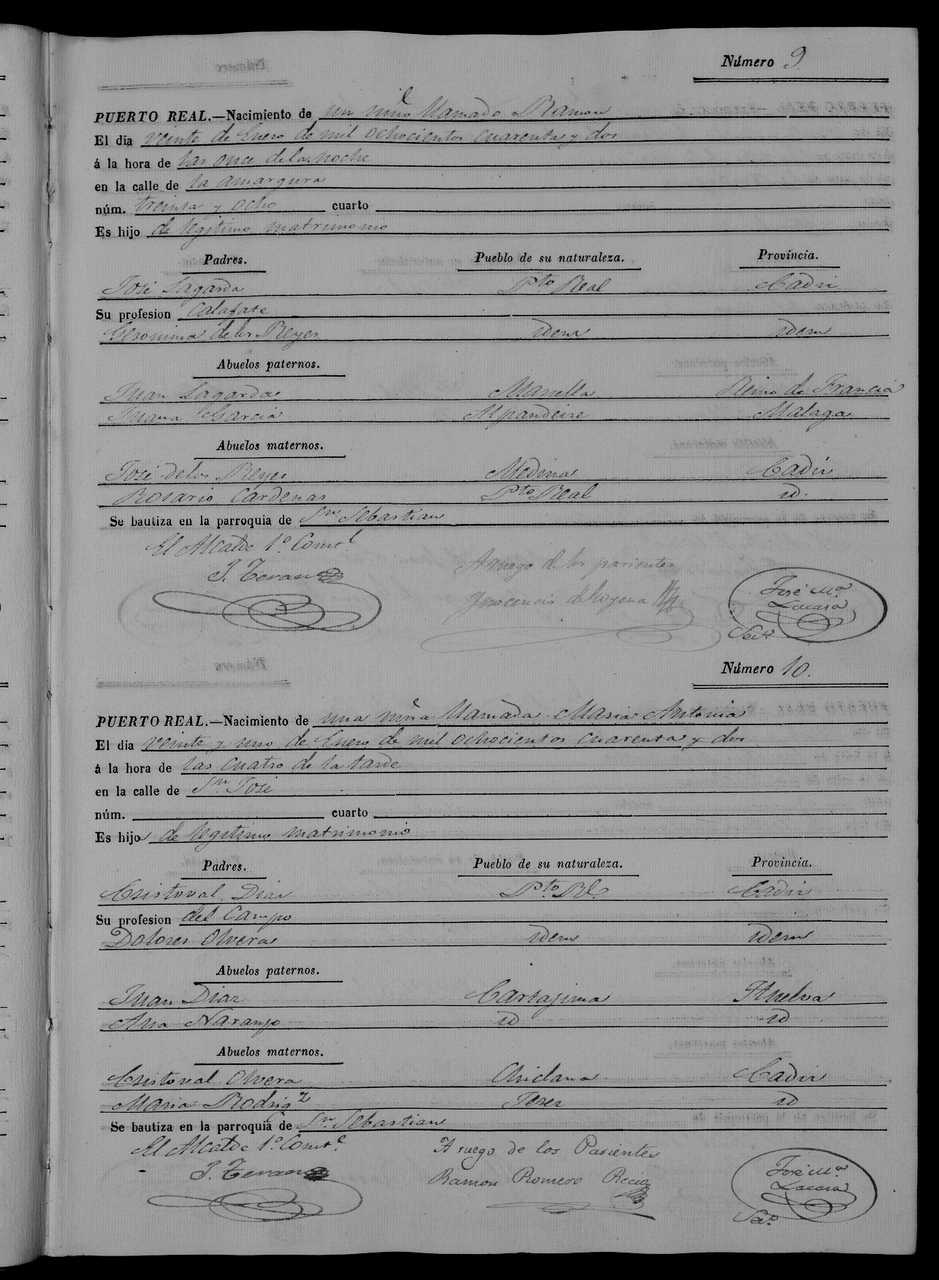 Número 9.
PUERTO REAL.—Nacimiento de un niño llamado Ramon
El dia veinte de Enero de mil ochocientos cuarenta y dos
á la hora de las once de la noche
en la calle de la amargura
núm. treinta y ocho cuarto
Es hijo de legitimo matrimonio
Padres. Pueblo de su naturaleza. Provincia.
José Lagarda Pto Real Cadiz
Su profesion Calafate
Geronima de los Reyes idem idem
Abuelos paternos.
Juan Lagarda Marsella Reino de Francia
Juana Garcia Alpandeire Malaga
Abuelos maternos.
José de los Reyes Medina Cadiz
Rosario Cardenas Pto Real id.
Se bautiza en la parroquia de Sn Sebastian
El Alcalde 1º Const.l
J. Teran
A ruego de los parientes
Inocencio
José Ma.
Lacasa
Sec.
Número 10.
PUERTO REAL.—Nacimiento de una niña llamada Maria Antonia
El dia veinte y uno de Enero de mil ochocientos cuarenta y dos
á la hora de las cuatro de la tarde
en la calle de Sn José
núm. cuarto
Es hijo de legitimo matrimonio
Padres. Pueblo de su naturaleza. Provincia.
Cristoval Diaz Pto. Rl. Cadiz
Su profesion del Campo
Dolores Olvera idem idem
Abuelos paternos.
Juan Diaz Cartajima Huelva
Ana Naranjo id id
Abuelos maternos.
Cristoval Olvera Chiclana Cadiz
Maria Rodrigz Jerez id
Se bautiza en la parroquia de Sn Sebastian
El Alcalde 1º Const.l
J. Teran
A ruego de los Parientes
Ramon Romero Recio
José Ma.
Lacasa
Sec.